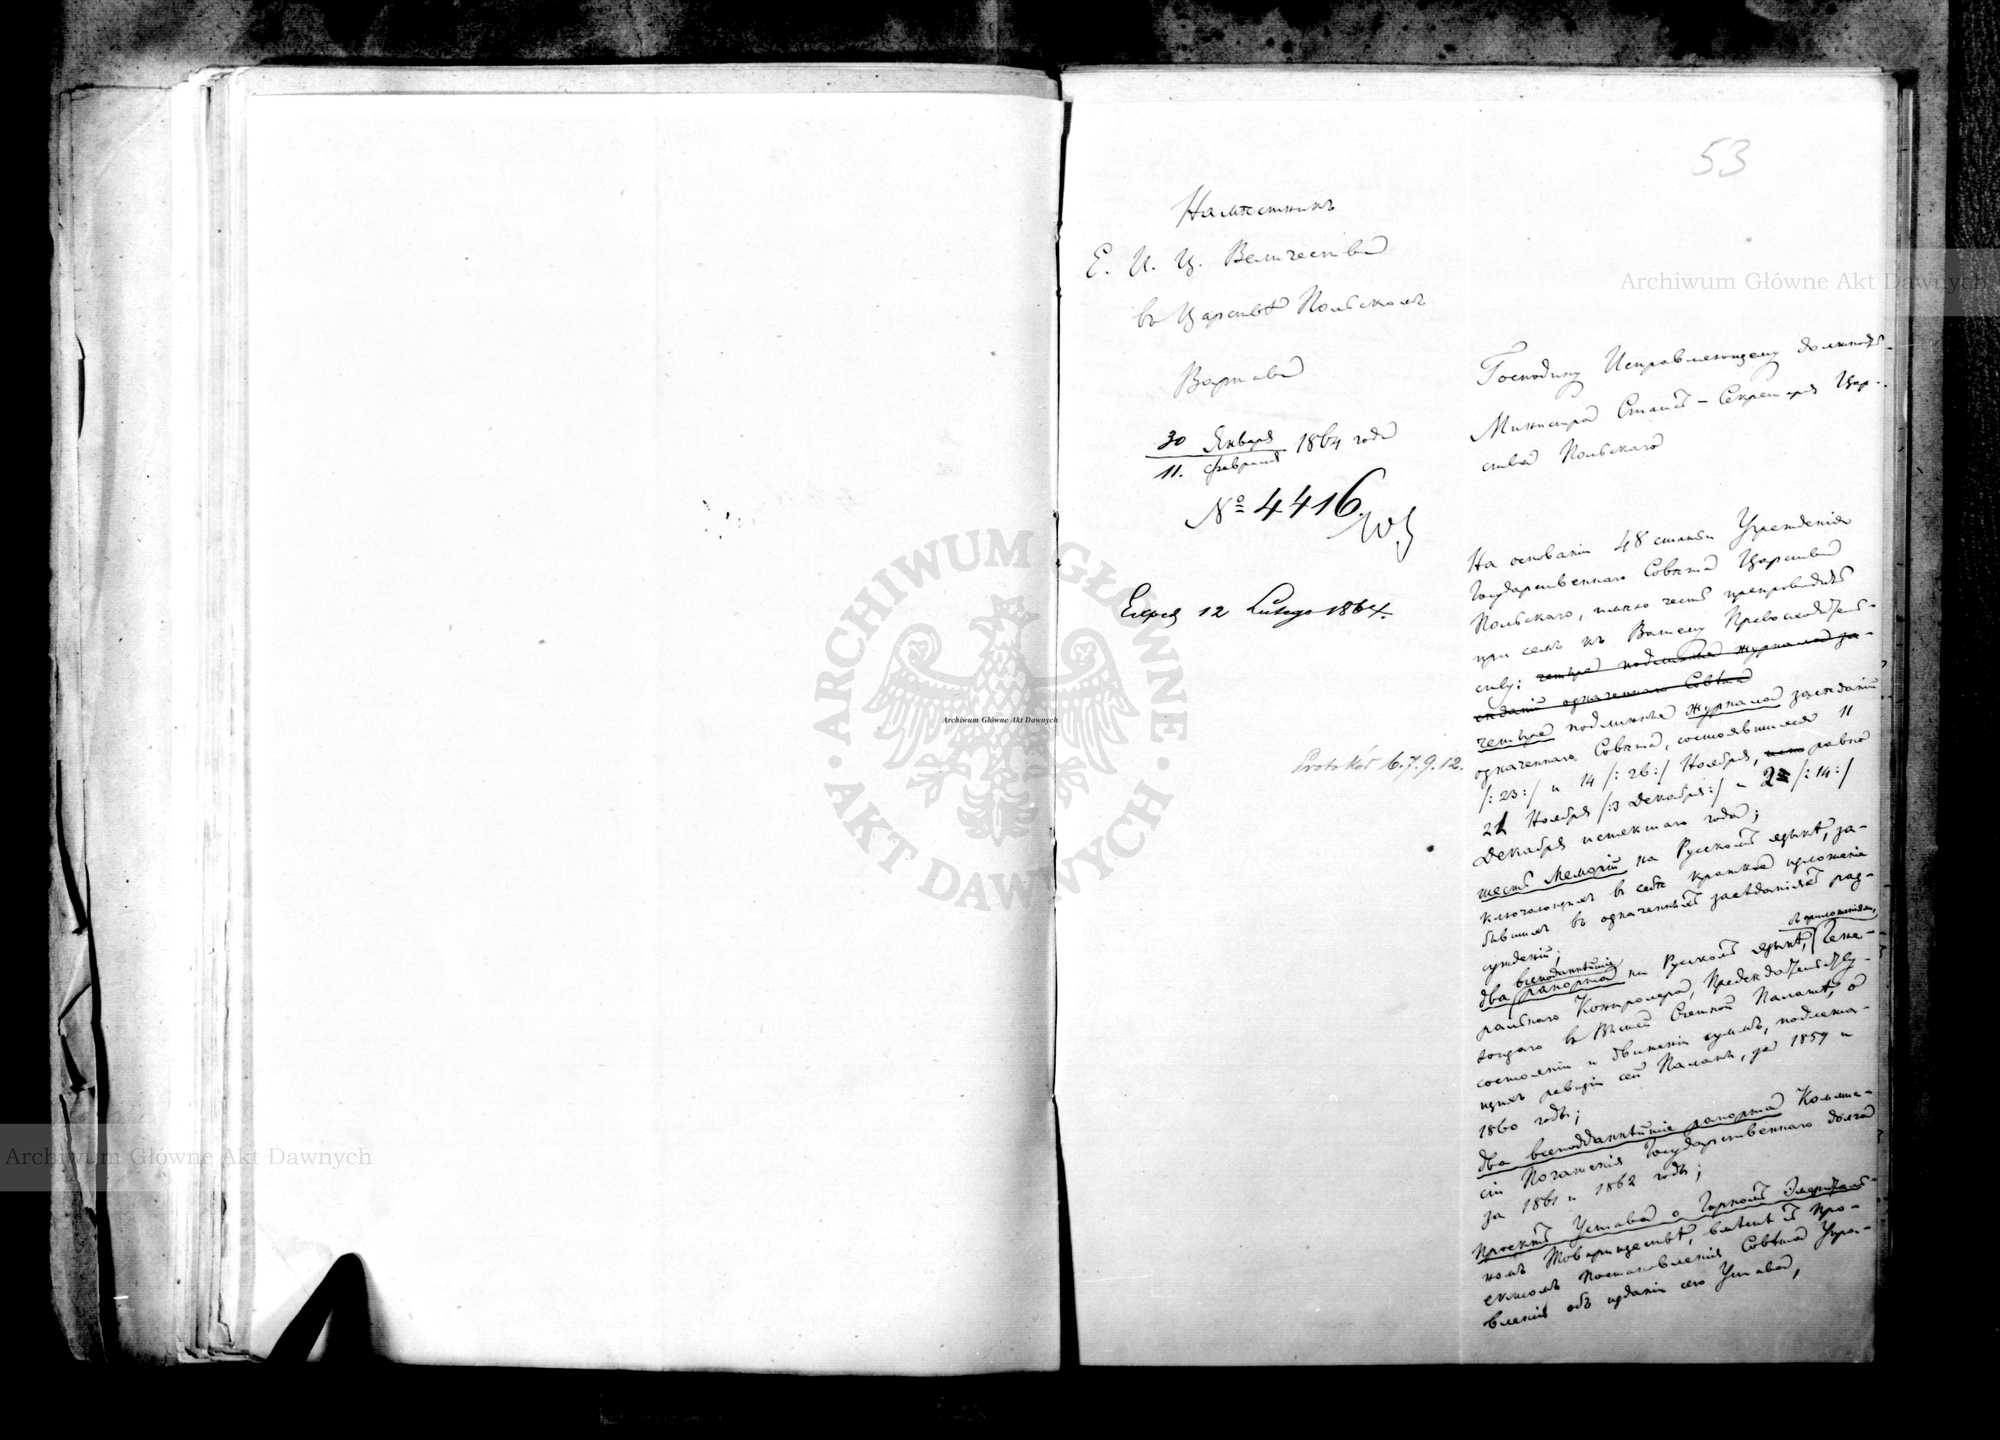 53
Намѣстникъ
Е. И. Ц. Величества
въ Царствѣ Польскомъ
Варшава
30 Января 1864 года
11. Февраля
№ 4416.
Exped 12 Lutego 1864.
Protokół 6.7.9.12.
Господину Исправляющему должность
Министра Статсъ-Секретаря Цар-
ства Польскаго
На основаніи 48 статьи Учрежденія
Государственнаго Совѣта Царства
Польскаго, имѣю честь препроводить
при семъ къ Вашему Превосходитель-
ству: четыре подлинные журнала за-
сѣданій означеннаго Совѣта
четыре подлинные журнала засѣданій
означеннаго Совѣта, состоявшихся 11
/: 23:/ и 14 /: 26:/ Ноября, равно
21 Ноября /:3 Декабря:/ и 2 /: 14:/
Декабря истекшаго года;
шесть Меморій на Русскомъ языкѣ, за-
ключающихъ въ себѣ краткое изложеніе
бывшихъ въ означенныхъ засѣданіяхъ раз-
сужденій;
два всеподданнѣйшіе рапорта на Русскомъ языкѣ, съ приложеніями, Гене-
ральнаго Контролера, Предсѣдательству-
ющаго въ Высшей Счетной Палатѣ, о
состояніи и движеніи суммъ, подлежа-
щихъ ревизіи сей Палаты, за 1859 и
1860 годы;
два всеподданнѣйшіе рапорта Коммис-
сіи Погашенія Государственнаго долга
за 1861 и 1862 годы;
Проектъ Устава о Горномъ Эмериталь-
номъ Товариществѣ, вмѣстѣ съ про-
ектомъ Постановленія Совѣта Упра-
вленія объ изданіи сего Устава,
Archiwum Główne Akt Dawnych
Archiwum Główne Akt Dawnych
Archiwum Główne Akt Dawnych
ARCHIWUM GŁÓWNE AKT DAWNYCH